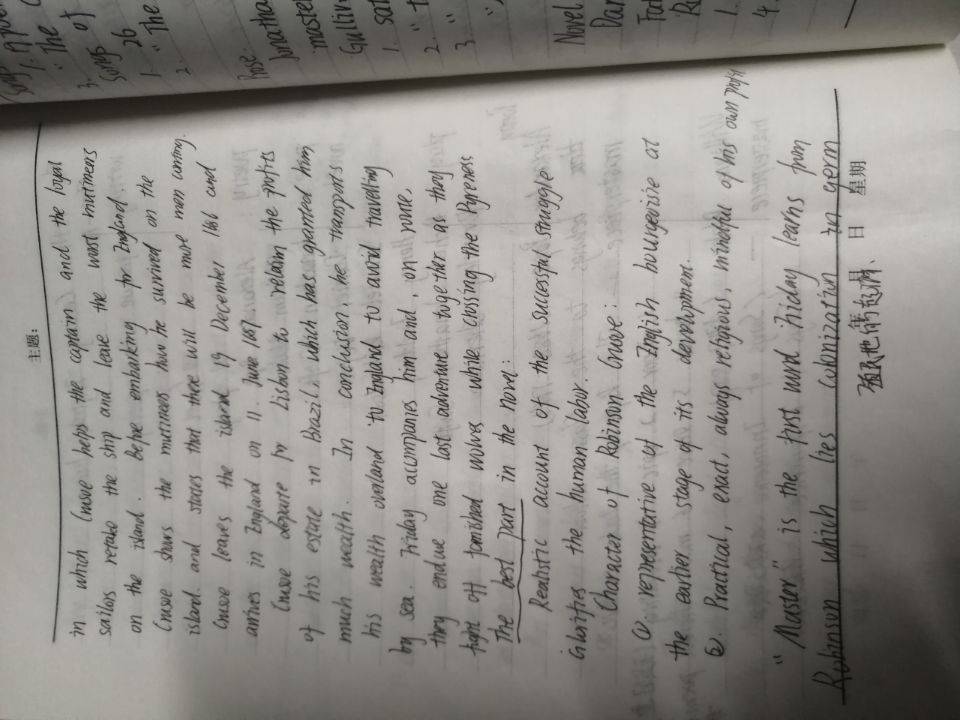 主题:
in which Crusoe helps the captain and the loyal
sailors retake the ship and leave the worst mutineers
on the island. Before embarking for England
Crusoe shows the mutineers how he survived on the
island. and states that there will be more men coming.
Crusoe leaves the island 19 December 1686 and
arrives in England on 11. June 1687.
Crusoe departe for Lisbon to reclaim the profits
of his estate in Brazil, which has granteed him
much wealth. In conclusion, he transports
his wealth overland to England to avoid travelling
by sea. Friday accompanies him and, on route,
they endue one last adventure together as they
fight off famished wolves while clossing the Pyreness
The best part in the novel:
Realistic account of the successful struggle
Glorifies the human labor.
Character of Robinson Crusoe:
①. representative of the English bourgeoisie at
the earlier stage of its development.
②. Practical, exact, always religious, mindful of his own profit
"Master" is the first word Friday learns from
Robinson which lies colonization in germ
殖民地的起源、
年 月 日 星期
Prose.
Jonatha
master
Gulliv
1. sat
2. "
3 "
Novel
Dan
1.
4.
Songs of
26
1 "The
2.
3. "The